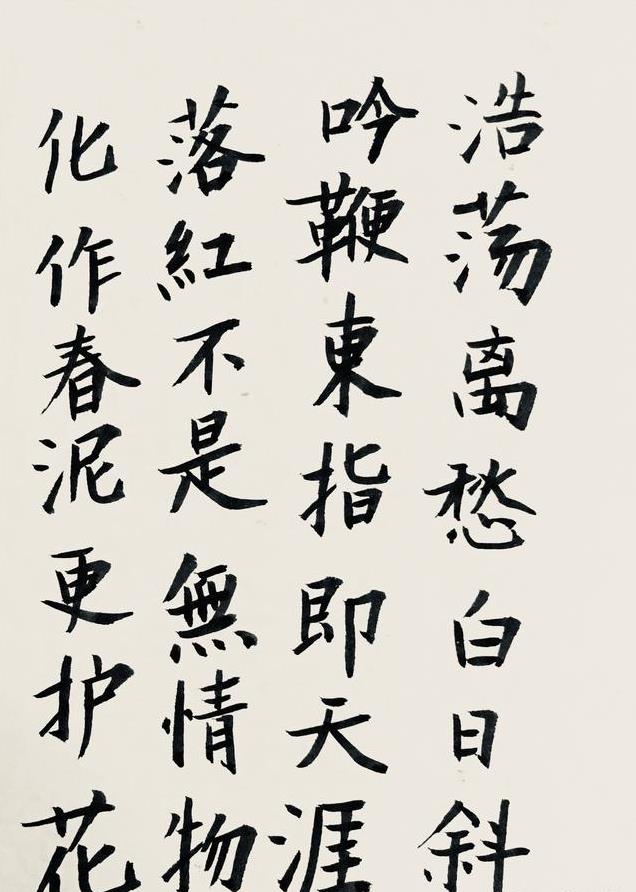 浩荡离愁白日斜
吟鞭東指即天涯
落紅不是無情物
化作春泥更护花